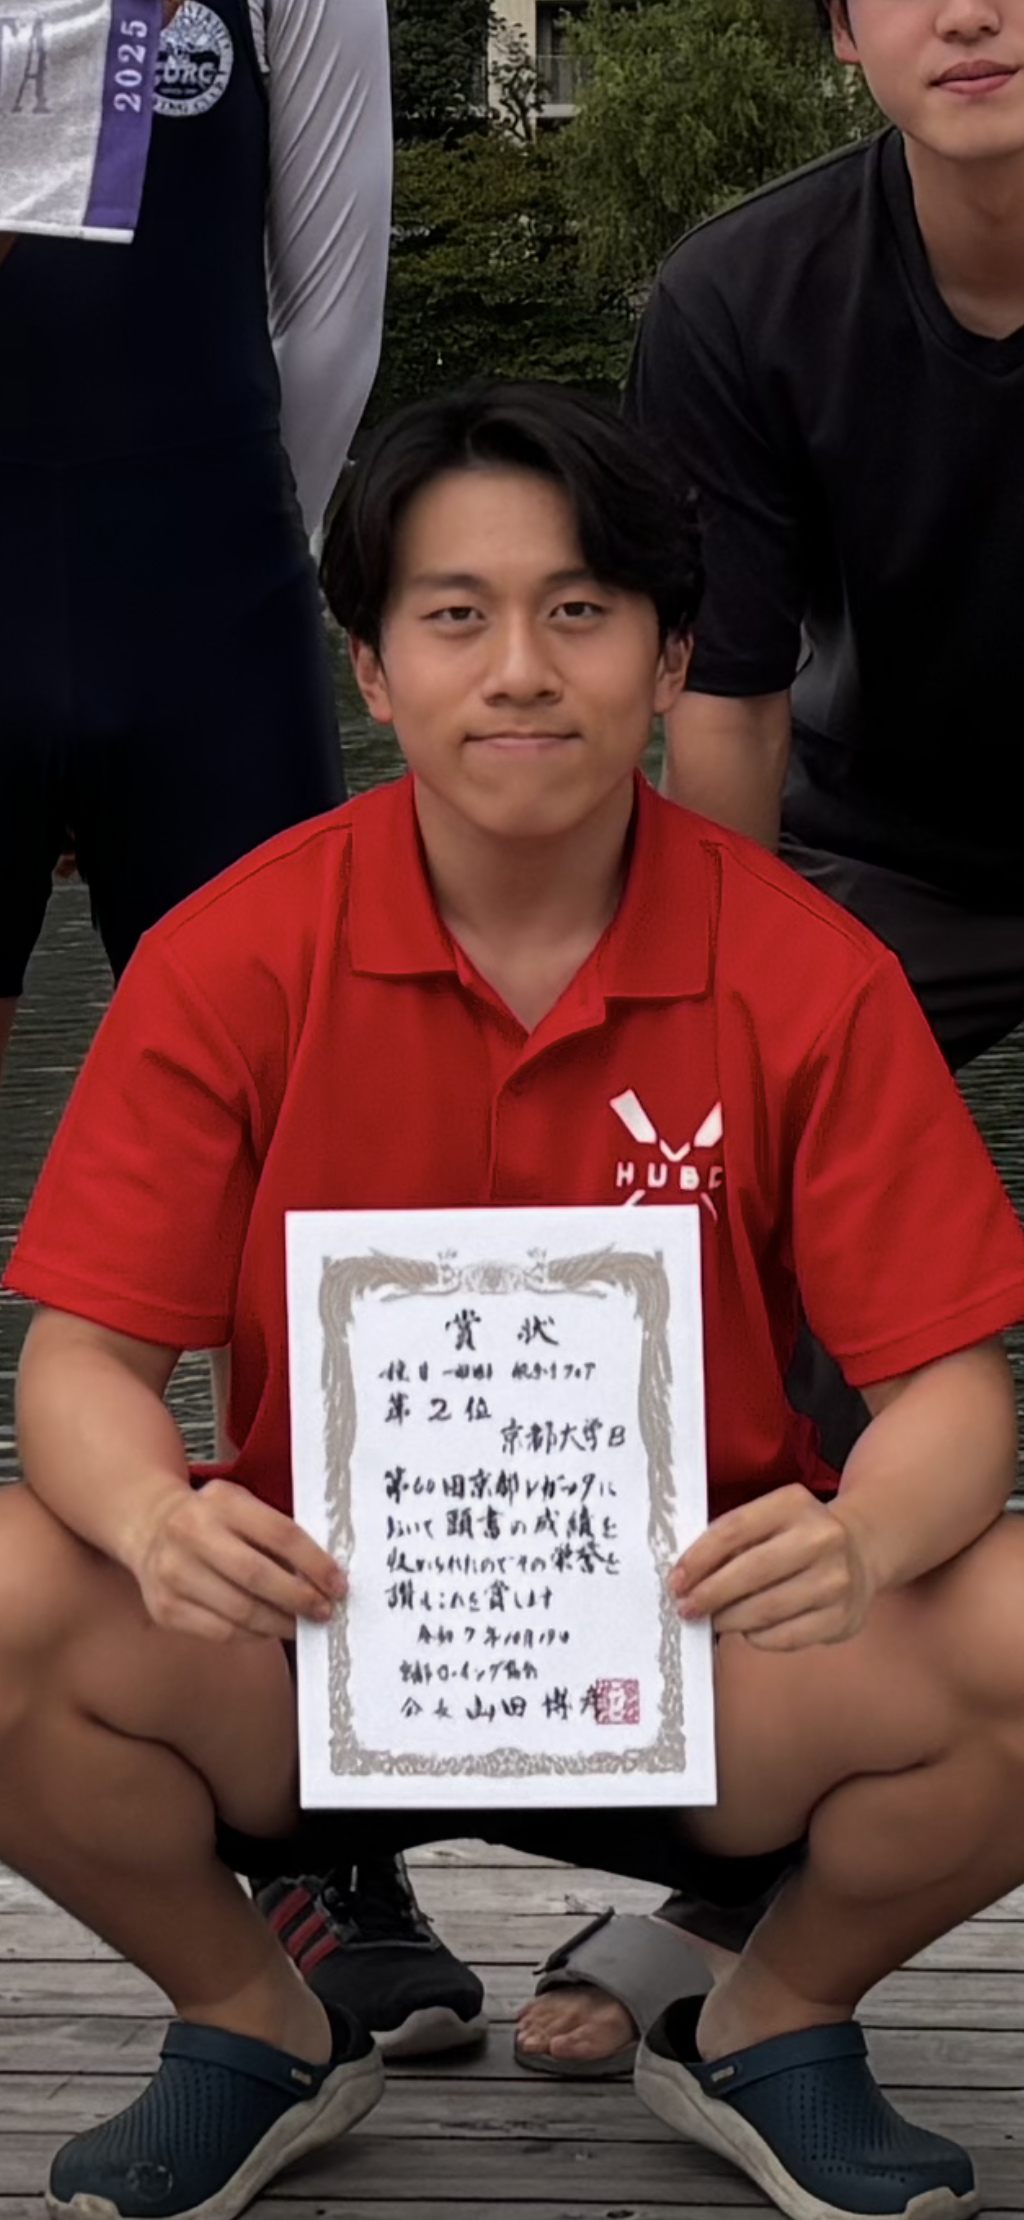 2025
URC
HUBC
賞状
種目 一般男子 舵手付フォア
第2位
京都大学B
第60回京都レガッタに
おいて頭書の成績を
収められたのでその栄誉を
讃えこれを賞します
令和7年10月19日
京都ローイング協会
会長 山田 博